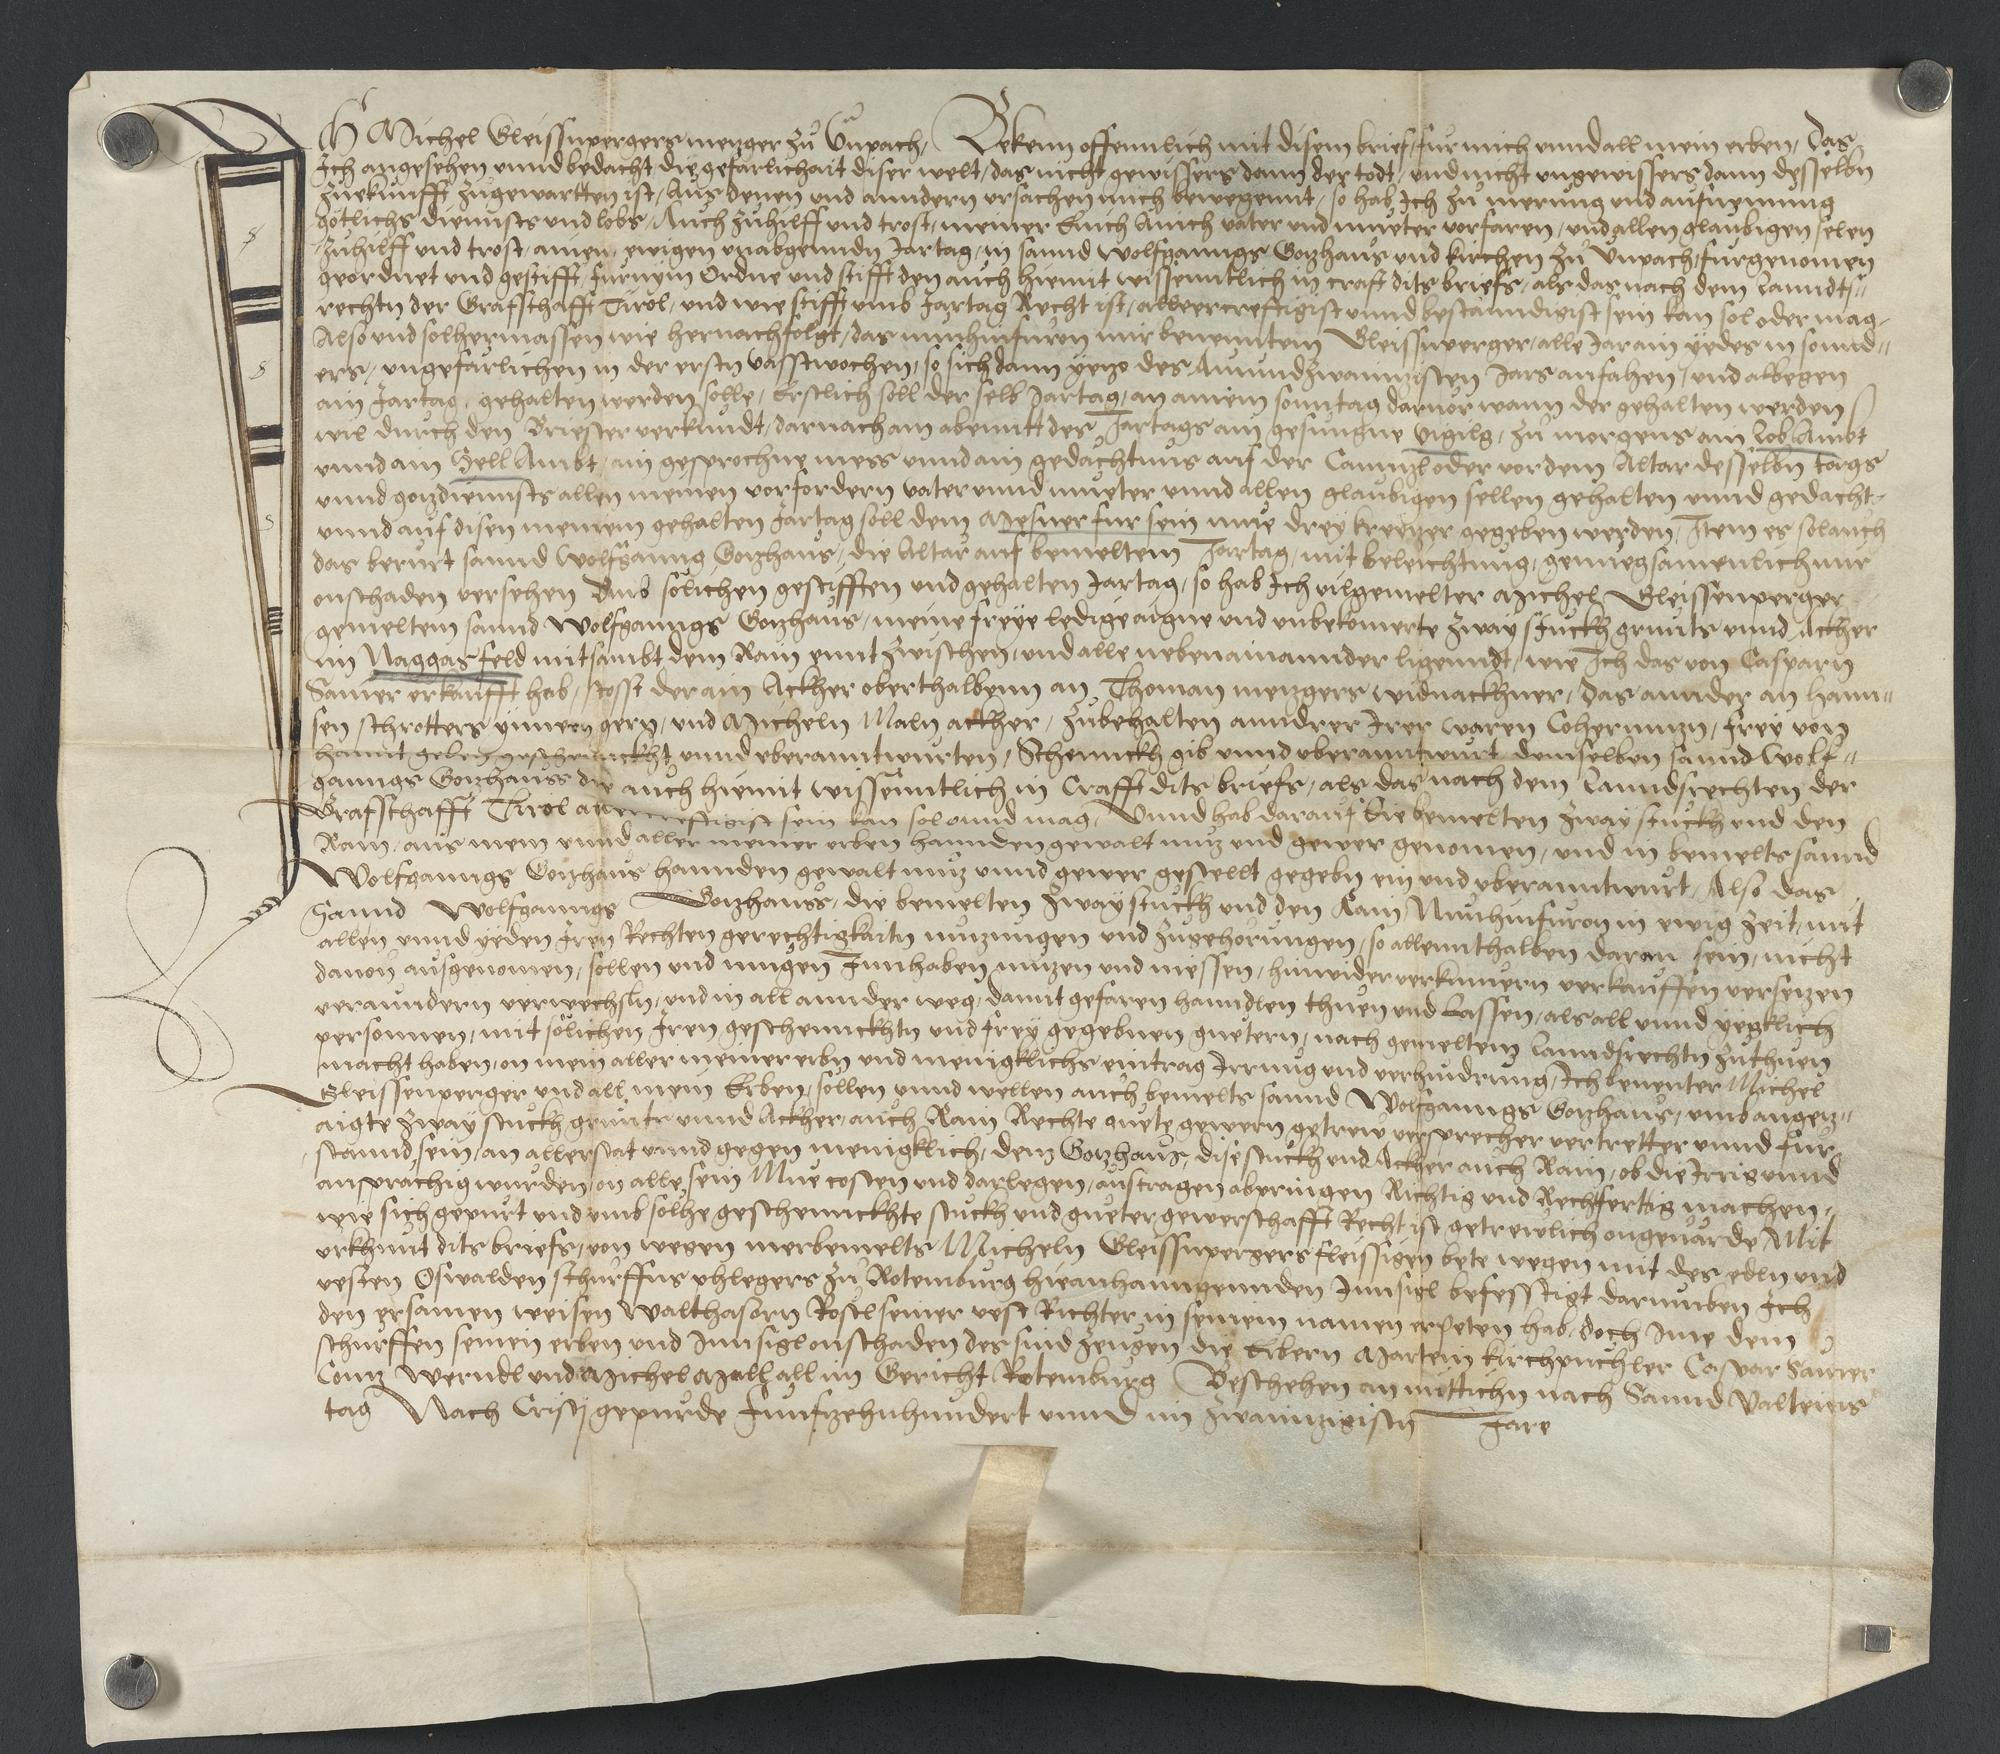 Ich Michel Gleissnpergers menger zu Vnpach, Bekenn offennlich mit disem brief fur mich vnnd all mein erben, Das
Ich angesehen vnnd bedacht die gefarlichait diser welt, das nicht gewissers dann der todt, vnd nicht vngewissers dann desselbn
zuekunfft zugewartten ist, Aus denen vnd anndern vrsachen mich bewegennt, so hab Ich zu merung vnd aufnemung
gotlichs diennsts vnd lobs, Auch zuhilff vnd trost, meiner Enich Anich vater vnd mueter vorfaren, vnd allen glaubigen selen
zuhilff vnd trost, ainen ewigen vnabgenndn Jartag, in sannd Wolfganngs Gotzhaus vnd kirchen zu Vnpach, furgenomen
geordnet vnd gestifft, furnym Ordne vnd stifft den auch hiemit wissenntlich in craft dits briefs, als das nach dem Lanndts-
rechtn der Grafschafft Tirol, vnd wie stifft vmb Jartag Recht ist, allercreftigist vnnd bestanndigist sein kan sol oder mag,
Also vnd solhermassen wie hernachfolgt, das nunhinfuron mir benenntem Gleissnperger, alle Jar ain yedes in sonnd-
ers, vngefarlichen in der erstn vasstwochen, so sich dann yetzo des Ainundzwainzisten Jars anfahen, vnd albegen
ain Jartag, gehalten werden solle, Erstlich soll der selb Jartag, an ainem sonntag daruor wann der gehalten werden
wil durch den Briester verkundt, darnach am abennt des Jartags ain gesungne vigilg, zu morgens ain Lob Ambt
vnnd ain Sell Ambt, ain gesprochne mess vnnd ain gedachtnus auf der Canntzl oder vor dem Altar desselbn tags
vnnd gotzdiennsts allen meinen vorfordern vater vnnd mueter vnnd allen glaubigen sellen gehalten vnnd gedacht,
vnnd auf disen meinem gehalten Jartag soll dem Mesner fur sein mue drey kreitzer gegeben werden, Item es sol auch
das berurt sannd Wolfganng Gotzhaus, die Altar auf bemeltem Jartag, mit beleichtung, genuegsamenlich mir
onschaden versehen Vmb solichen gestifften vnd gehalten Jartag, so hab Ich vilgemelter Michel Gleissenperger
gemeltem sannd Wolfganngs Gotzhaus, meine freye ledige aigne vnd vnbekomerte zway stuckh grunts vnnd Ackher
im Naggasfeld mitsambt dem Rain ennt zwischen, vnd alle nebenainannder ligenndt, wie Ich das von Casparn
Sainer erkaufft hab, stosst der ain Ackher oberthalbenn an Thoman mengers widnackhner, das annder an Hann-
sen schrotters ynnern gern, und Micheln Maln ackher, zubehalten anndrer Irer waren Coherenntzn, frey von
hannt geben geschennckht vnnd vberanntwurten, Schennckh gib vnnd vberanntwurt demselben sannd Wolf-
ganngs Gotzhauss die auch hiemit wissenntlich in Crafft dits briefs, als das nach dem Lanndsrechten der
Grafschafft Tirol allercreftigist sein kan sol vnnd mag, Vnnd hab darauf die bemelten zway stuckh vnd den
Rain, aus mein vnnd aller meiner erben hannden gewalt nutz vnd gewer genomen, vnd in bemelts sannd
Wolfganngs Gotzhaus hannden gewalt nutz vnnd gewer gestellt gegebn ein vnd vberanntwurt, Also das
Sannd Wolfganngs Gotzhauss, die bemelten zway stuckh vnd den Rain, Nunhinfuron in ewig zeit, mit
allen vnnd yeden Iren Rechten gerechtigkaitn nutzungen vnd zugehorungen, so allennthalben daran sein, nicht
dauon ausgenomen, sollen vnd mugen Innhaben nutzen vnd niessen, hinwider verkumern verkauffen versetzen
veraundern verwechsln, vnd in all annder weg, damit gefaren hanndlen thuen vnd Lassen, als all vnnd yegklich
personnen, mit solichen Iren geschennckhtn vnd frey gegebnen guetern, nach gemeltem Lanndsrechtn zuthuen
macht haben, on mein aller meiner erbn vnd menigklichs eintrag Irrung vnd verhindrung, Ich benenter Michel
Gleissenperger vnd all mein Erben, sollen vnnd wellen auch bemelts sannd Wolfganngs Gotzhaus, vmb angetz-
aigte zway stuckh grunts vnnd Ackher, auch Rain Rechte guete gewern, getrew versprecher vertretter vnnd fur-
stannd sein, an aller stat vnnd gegen menigklich, dem Gotzhaus, dise stuckh vnd Ackher auch Rain, ob die Irrig vnnd
ansprachig wurden, on alle sein Mue costen vnd darlegen, austragen aberingen Richtig vnd Rechfertig machen,
wie sich gepurt vnd vmb solhe geschennckhte stuckh vnd gueter gewerschafft Recht ist getrewlich ongeuarde, Mit
vrkhunt dits briefs, von wegen merbemelts Micheln Gleissnpergers fleissigen bete wegen mit des edln vnd
vesten Oswalden schurffns phlegers zu Rotemburg hieanhanngennden Innsigl befesstigt darumben Ich
den ersamen weisen Walthasarn Rosl seiner vest Richter in seinem namen erpeten hab, doch Ime dem
schurffen seinen erben vnd Innsigl onschaden des sind zeugen die Erbern Martein Kirchpuchler Caspar Sainer
Contz Werndl vnd Michel Mall all im Gericht Rotemburg Beschehen an mittichn nach Sannd Valteins
tag Nach Cristj gepurde Funfzehnhundert vnnd im zwainzigistn Jare